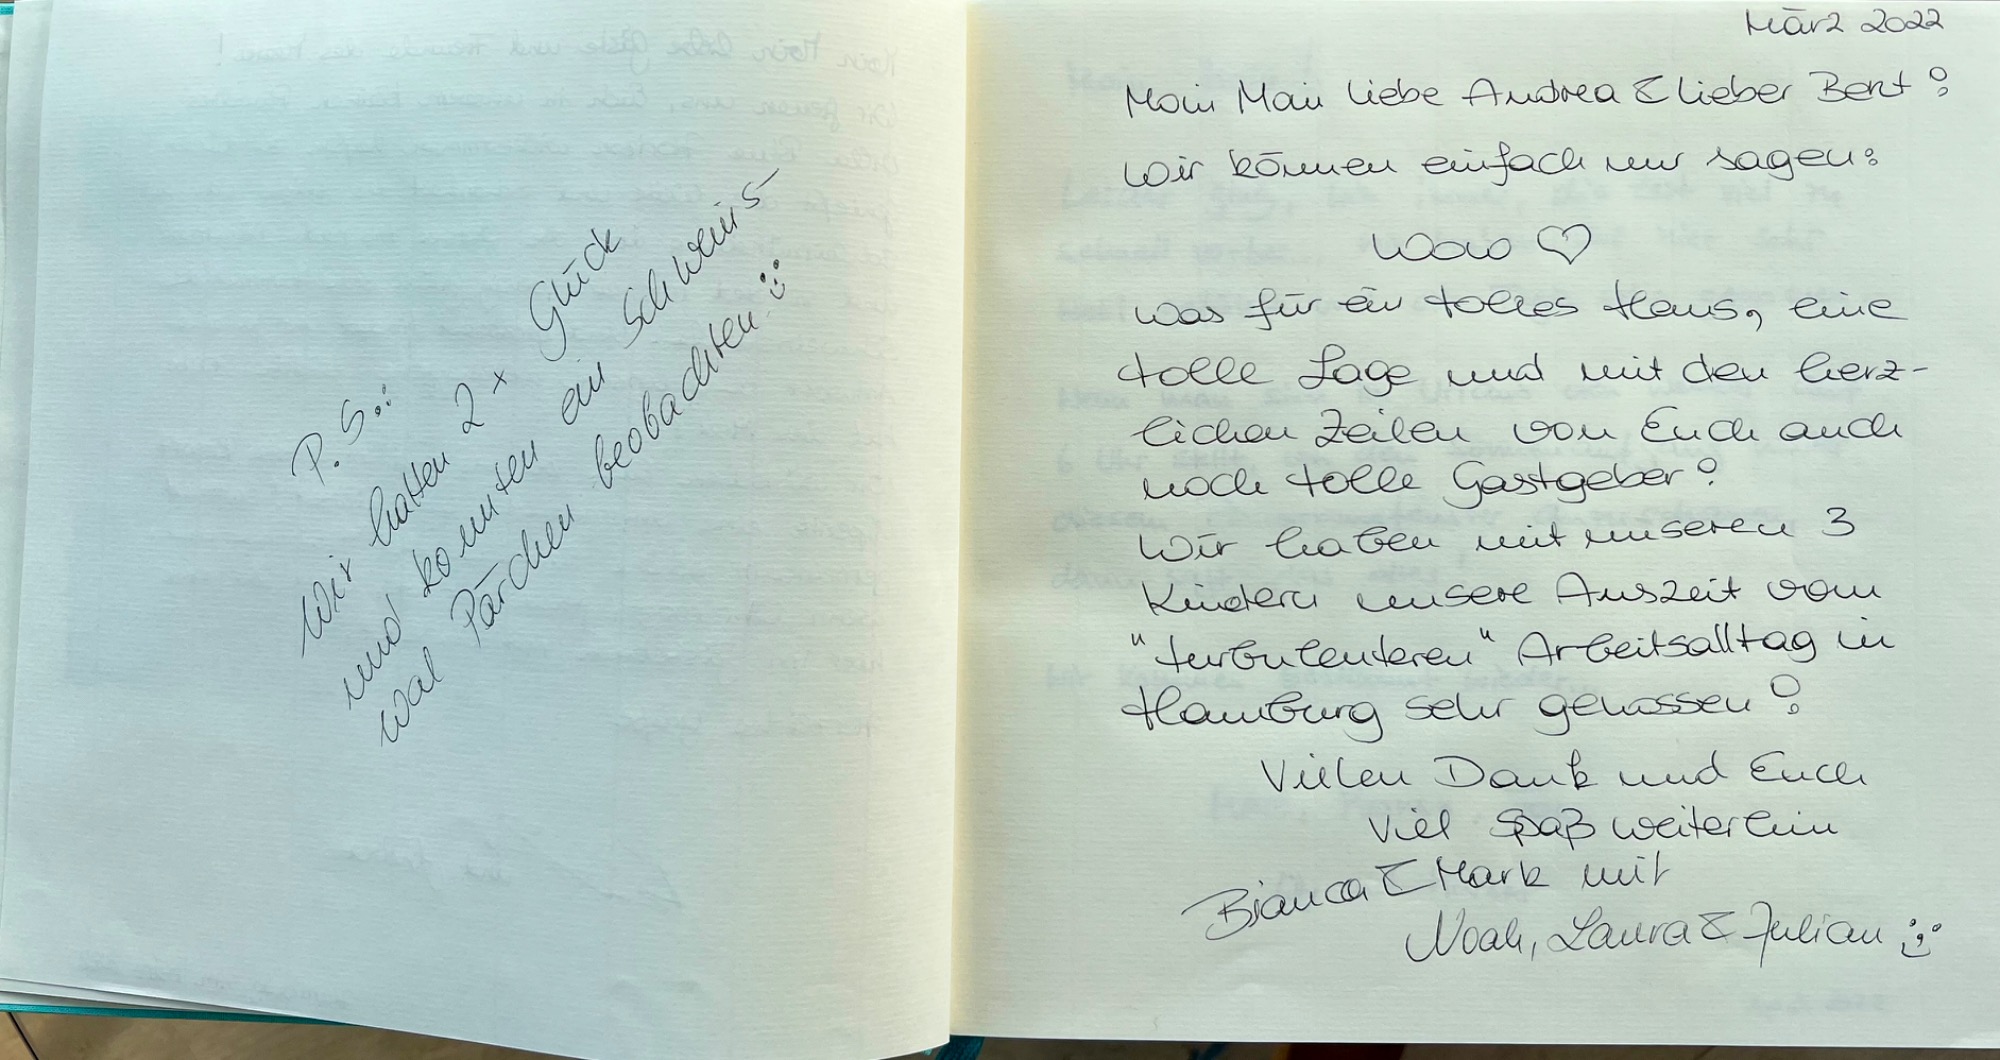 P.S.:
Wir hatten 2x Glück
und konnten ein Schweins-
wal Pärchen beobachten :)
März 2022
Moin Moin liebe Andrea & lieber Bent!
Wir können einfach nur sagen:
Wow ♡
was für ein tolles Haus, eine
tolle Lage und mit den herz-
lichen Zeilen von Euch auch
noch tolle Gastgeber!
Wir haben mit unseren 3
Kindern unsere Auszeit vom
"turbulenteren" Arbeitsalltag in
Hamburg sehr genossen!
Vielen Dank und Euch
viel Spaß weiterhin
Bianca & Mark mit
Noah, Laura & Julian :)